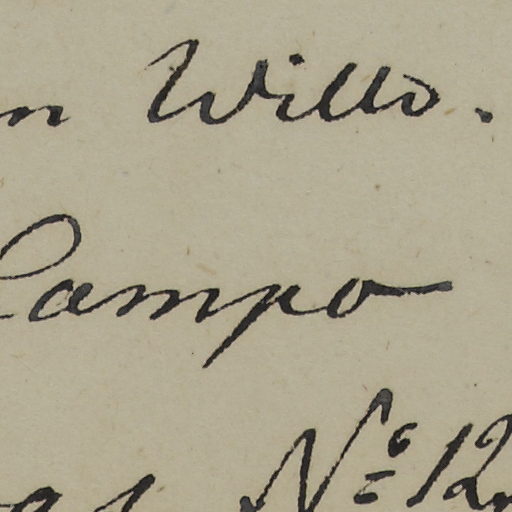 n Willo.
Campo
Nº 12